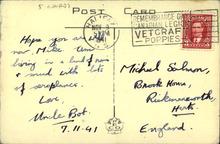 POST CARD
HALIFAX
REMEMBRANCE
CANADIAN LEGION
VETCRAFT
POPPIES
Hope you are
now Mike. Am
living in a land of snow
& mud with lots
of aeroplanes.
Love,
Uncle Bob
7.11.41
Michael Salmon,
Brook House,
Rickmansworth,
Herts.
England.